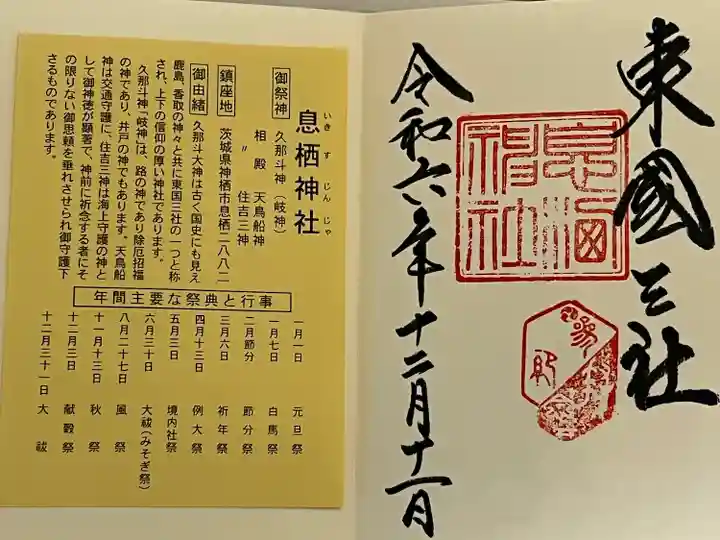 東國三社
息栖神社
参拝
令和六年十二月十一日
いきすじんじゃ
息栖神社
御祭神 久那斗神(岐神)
相殿 天鳥船神
〃 住吉三神
鎮座地 茨城県神栖市息栖二八八二
御由緒 久那斗大神は古く国史にも見え
鹿島、香取の神々と共に東国三社の一つと称
され、上下の信仰の厚い神社であります。
久那斗神(岐神)は、路の神であり除厄招福
の神であり、井戸の神でもあります。天鳥船
神は交通守護に、住吉三神は海上守護の神と
して御神徳が顕著で、神前に祈念する者にそ
の限りない御恩頼を垂れさせられ御守護下
さるものであります。
年間主要な祭典と行事
一月一日 元旦祭
一月七日 白馬祭
二月節分 節分祭
三月六日 祈年祭
四月十三日 例大祭
五月三日 境内社祭
六月三十日 大祓(みそぎ祭)
八月二十七日 風祭
十一月十三日 秋祭
十二月三日 献穀祭
十二月三十一日 大祓